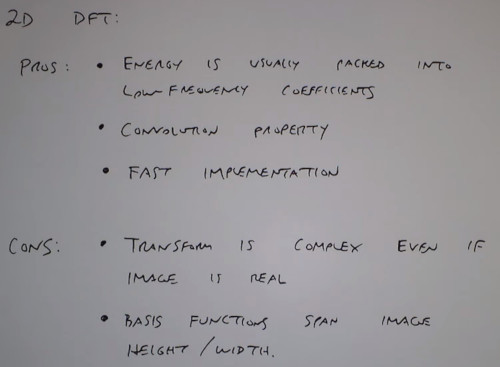 2D DFT:
PROS: • ENERGY IS USUALLY PACKED INTO
LOW-FREQUENCY COEFFICIENTS
• CONVOLUTION PROPERTY
• FAST IMPLEMENTATION
CONS: • TRANSFORM IS COMPLEX EVEN IF
IMAGE IS REAL
• BASIS FUNCTIONS SPAN IMAGE
HEIGHT/WIDTH.